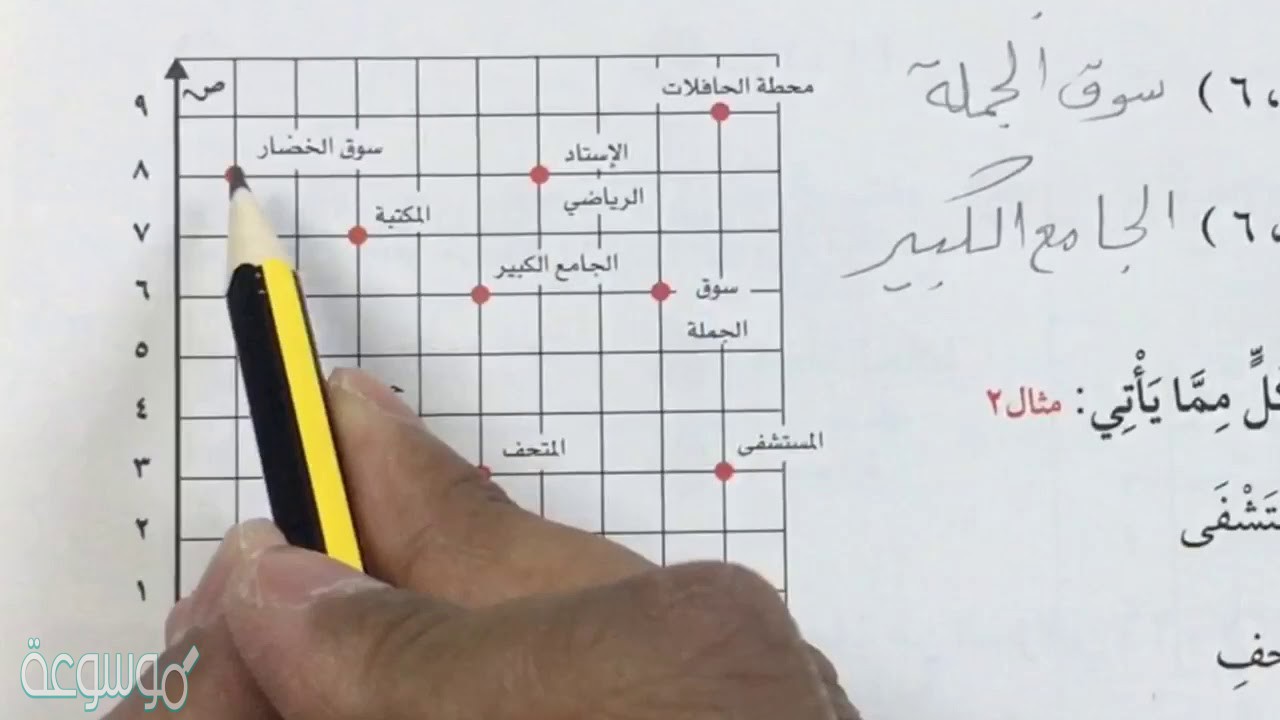 ص
٩
محطة الحافلات
سوق الخضار
الإستاد
الرياضي
٨
المكتبة
٧
الجامع الكبير
سوق
الجملة
٦
٥
٤
المتحف
المستشفى
٣
٢
١
٦ ) سوق الجملة
٦ ) الجامع الكبير
مِمَّا يَأْتِي: مثال٢
موسوعة